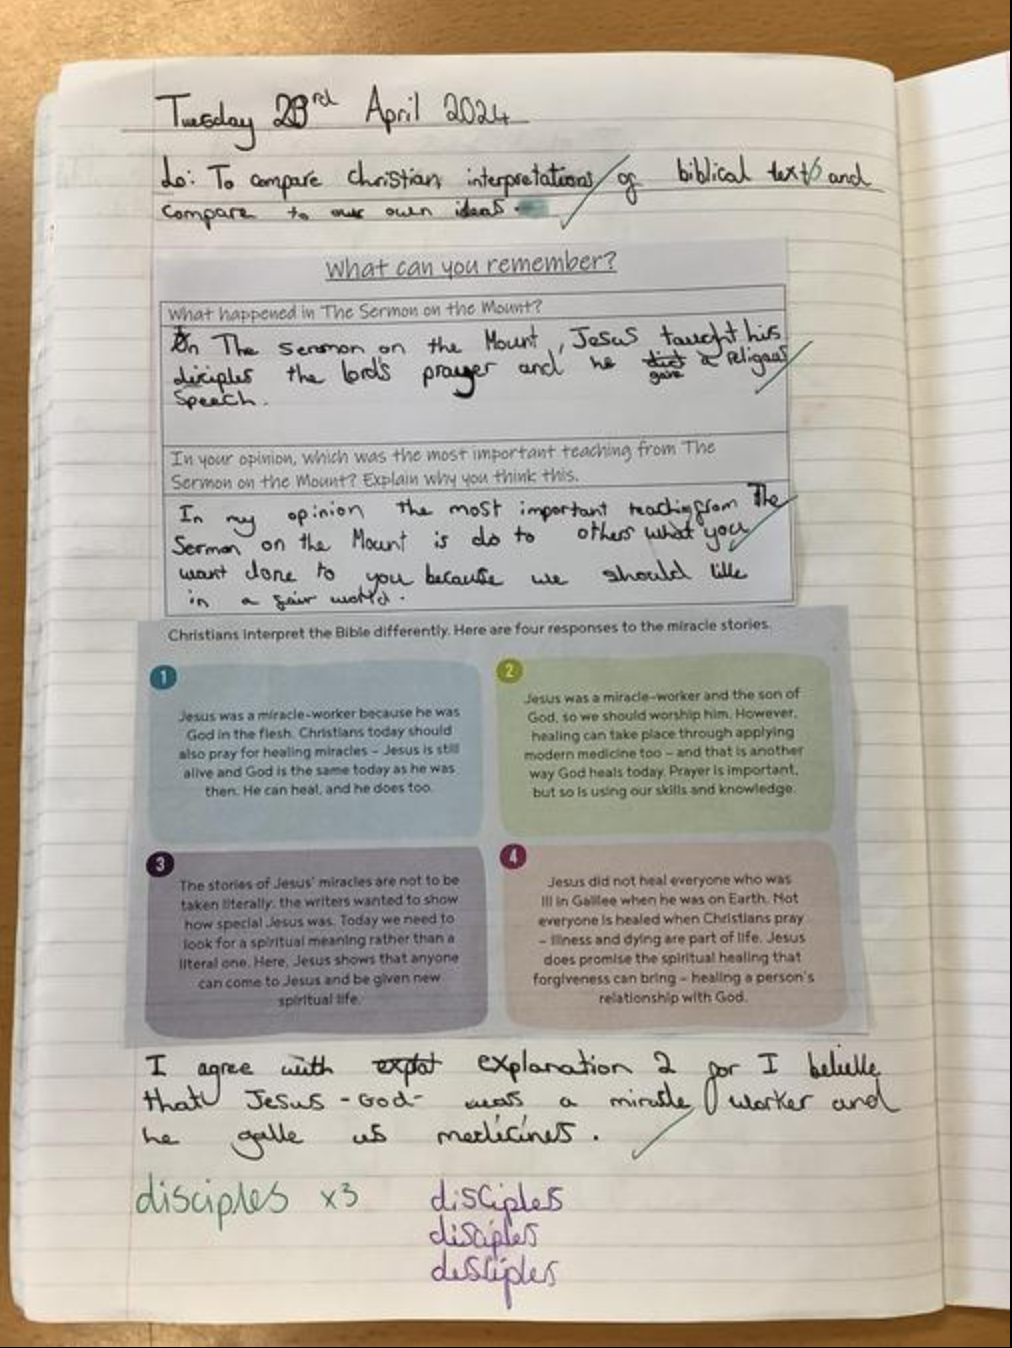 Tuesday 23rd April 2024
Lo: To compare christian interpretations of biblical texts and
compare to our own ideas.
What can you remember?
What happened in The Sermon on the Mount?
In The sermon on the Mount, Jesus taught his
diciples the lords prayer and he gave a religous
speech.
In your opinion, which was the most important teaching from The
Sermon on the Mount? Explain why you think this.
In my opinion the most important teaching from The
Sermon on the Mount is do to others what you
want done to you because we should live
in a fair world.
Christians interpret the Bible differently. Here are four responses to the miracle stories.
1
Jesus was a miracle-worker because he was
God in the flesh. Christians today should
also pray for healing miracles – Jesus is still
alive and God is the same today as he was
then. He can heal, and he does too.
2
Jesus was a miracle-worker and the son of
God, so we should worship him. However,
healing can take place through applying
modern medicine too – and that is another
way God heals today. Prayer is important,
but so is using our skills and knowledge.
3
The stories of Jesus' miracles are not to be
taken literally: the writers wanted to show
how special Jesus was. Today we need to
look for a spiritual meaning rather than a
literal one. Here, Jesus shows that anyone
can come to Jesus and be given new
spiritual life.
4
Jesus did not heal everyone who was
ill in Galilee when he was on Earth. Not
everyone is healed when Christians pray
– illness and dying are part of life. Jesus
does promise the spiritual healing that
forgiveness can bring – healing a person's
relationship with God.
I agree with explanation 2 for I belive
that Jesus -God- was a miracle worker and
he gave us medicines.
disciples x3 disciples
disciples
disciples